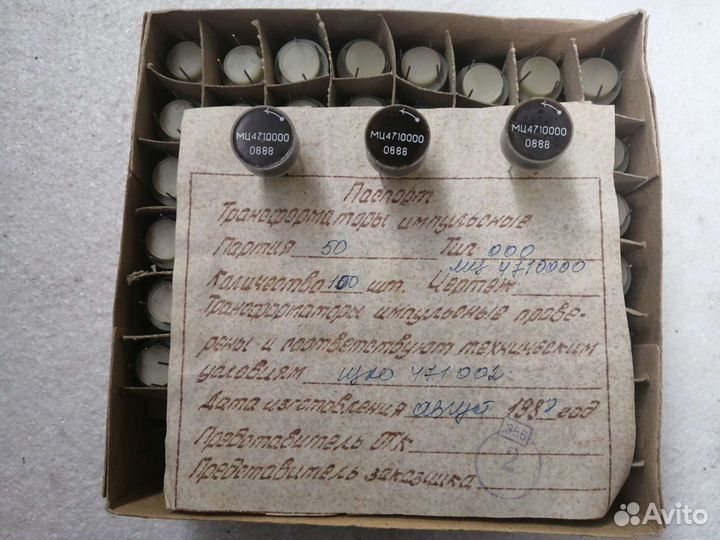 МЦ4710000
0888
МЦ4710000
0888
МЦ4710000
0888
Паспорт
Трансформаторы импульсные
Партия 50 Тип 000
Количество 100 шт. Чертеж МЦ 4710000
Трансформаторы импульсные прове-
рены и соответствуют техническим
условиям 471002
Дата изготовления август 1988 год
Представитель ОТК
Представитель заказчика
2
Avito